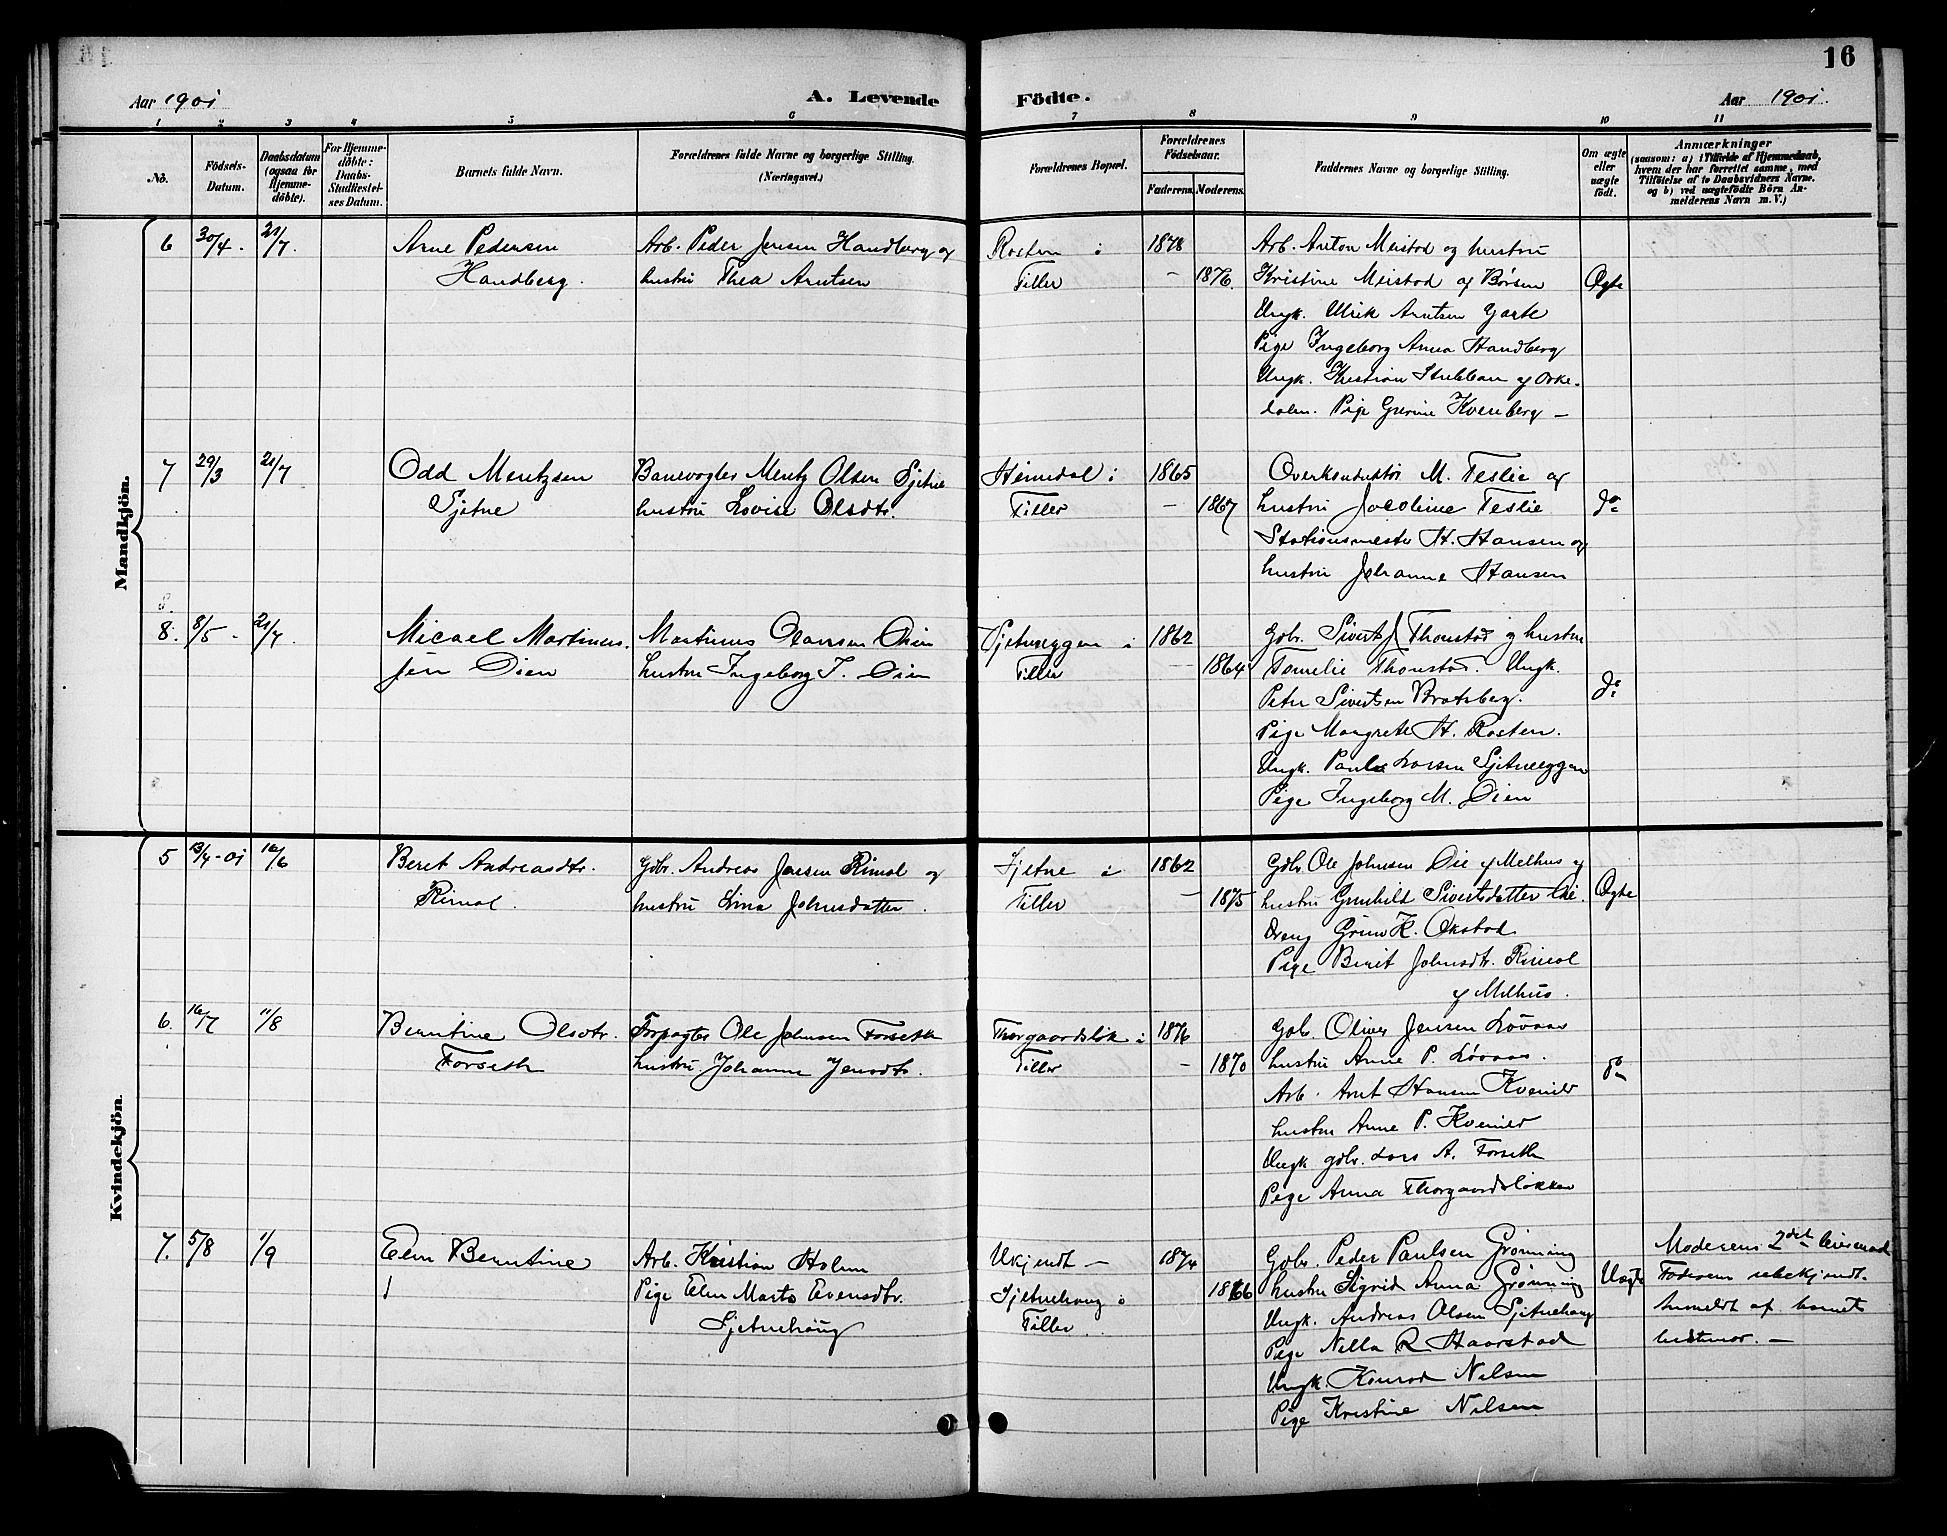 16
Aar 1901
A. Levende
Födte.
Aar 1901.
1 2 3 4 5 6 7 8 9 10 11
No.
Födsels-Datum.
Daabsdatum (ogsaa for Hjemme-döbte).
For Hjemme-döbte: Daabs-Stadfæstel-ses Datum.
Barnets fulde Navn.
Forældrenes fulde Navne og borgerlige Stilling.
(Næringsvei.)
Forældrenes Bopæl.
Forældrenes Födselsaar.
Faderens. Moderens.
Faddernes Navne og borgerlige Stilling.
Om ægte eller uægte födt.
Anmærkninger
(saasom: a) i Tilfælde af Hjemmedaab,
hvem der har forrettet samme, med
Tilföielse af to Daabsvidners Navne.
og b) ved uægtefödte Börn An-
melderens Navn m. V.)
Mandkjön.
6 30/4. 21/7. Arne Pedersen Arb. Peder Jensen Handberg og Rosten i 1878 Arb. Anton Meistad og hustru
Handberg. hustru Thea Arntsen Tiller – 1876. Kristine Meistad af Børsen Ægte
Ungk. Ulrik Arntsen
Pige Ingeborg Anna Handberg
Ungk. Kristian Stubban af Orke-
dalen. Pige Kvenberg –
7 29/3 21/7 Odd Mentzsen Banevogter Mentz Olsen Sjetne Heimdal i 1865 Overkonduktør M. Teslie og
Sjetne hustru Lovise Olsdtr. Tiller – 1867 hustru Jacoline Teslie do
Stationsmester H. Hansen og
hustru Johanne Hansen
8. 8/5 - 21/7 Micael Martinus- Martinus Olausen Øien Sjetneeggen i 1862 Gbr. Sivert J Thonstad og hustru
sen Øien hustru Ingeborg J. Øien Tiller – 1864 Thonstad. Ungk. do
Peter Sivertsen Bratsberg.
Pige Margrete H. Rosten.
Ungk. Paul Larsen Sjetneeggen
Pige Ingeborg M. Øien
Kvindekjön.
5 13/4-01 16/6 Beret Andreasdtr. Gbr. Andreas Jensen Rimol og Sjetne i 1862 Gbr. Ole Johnsen Øie af Melhus og
Rimol. hustru Lina Johnsdatter. Tiller – 1875 hustru Gunhild Sivertsdatter Øie. Ægte
Dreng K. Økstad
Pige Berit Johnsdtr. Rimol
af Melhus.
6. 16/7 11/8 Berntine Olsdtr. Forpagter Ole Johnsen Forseth Thorgaardsløk i 1876 Gbr. Oliver Jensen Løvaas
Forseth hustru Johanna Jensdtr. Tiller – 1870 hustru Anne P. Løvaas. do
Arb. Arnt Hansen Kvenild
hustru Anne P. Kvenild
Ungk gbr. Lars A. Forseth
Pige Anna Thorgaardsløkken
7. 5/8 1/9 Elen Berntine Arb. Kristian Holum Ukjendt – 1874 Gbr. Peder Paulsen Grønning Moderens 2det leiermaal
Pige Elen Marta Evensdtr. Sjetnehaug i 1866 hustru Sigrid Anna Grønning Uægte Faderen ubekjendt.
Sjetnehaug Tiller. Ungk. Andreas Olsen Sjetnehaug Anmeldt af barnets
Pige Nella R Haarstad bestmor. –
Ungk. Konrad Nilsen
Pige Kristine Nilsen